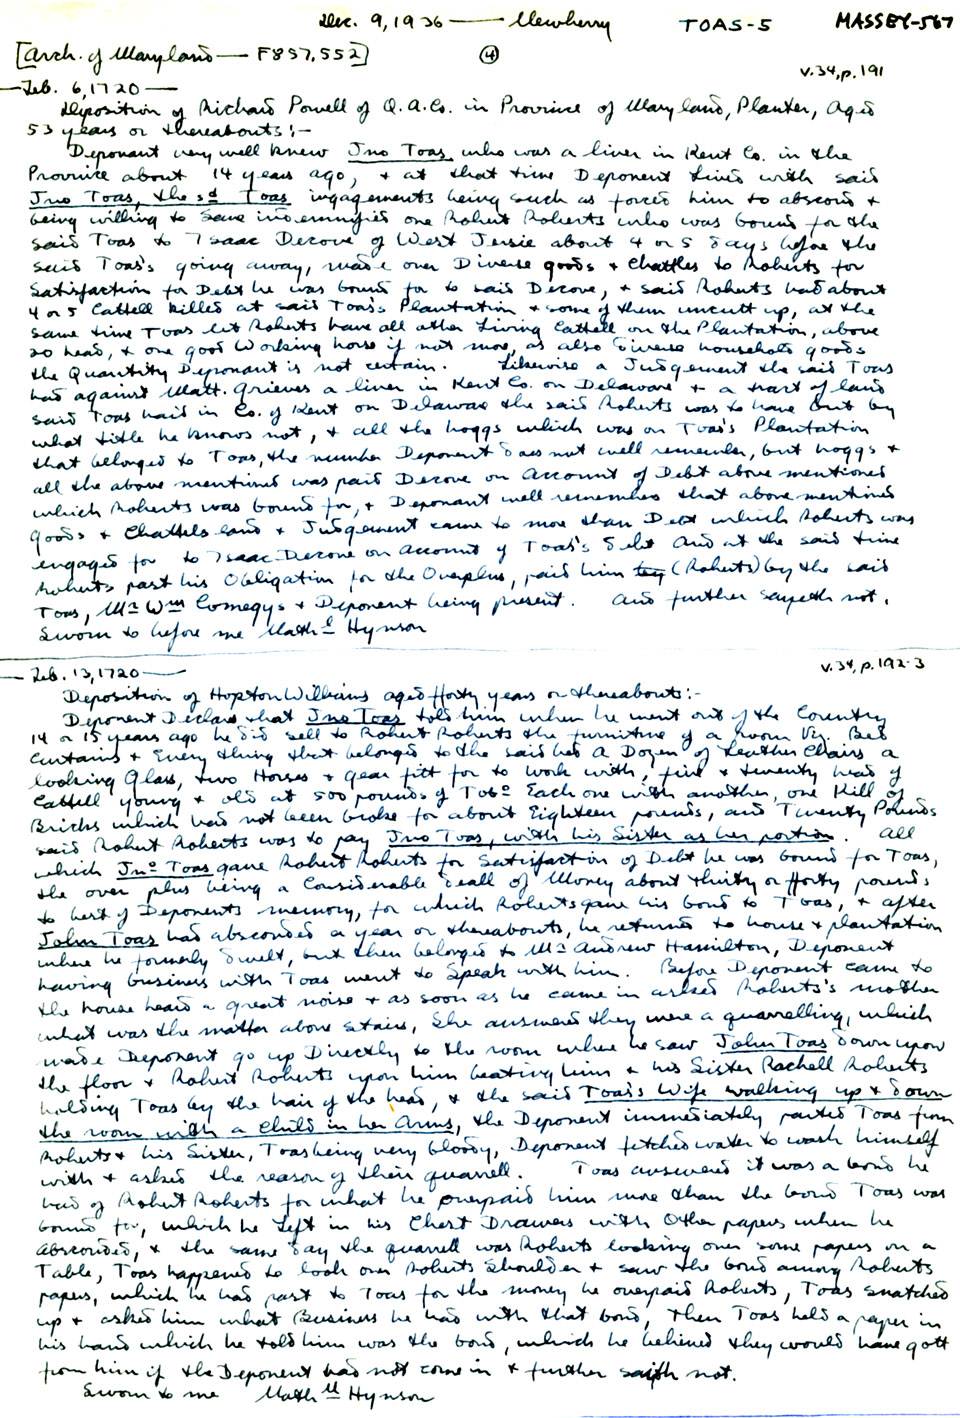 Dec. 9, 1936 — Newberry TOAS-5 MASSEY-567
[Arch. of Maryland — F857,552] ④
v.34, p. 191
—Feb. 6, 1720 —
Deposition of Richard Powell of Q. A. Co. in Province of Maryland, Planter, Aged
53 years or thereabouts:-
Deponant very well knew Jno Toas, who was a liver in Kent Co. in the
Province about 14 years ago, & at that time Deponent lived with said
Jno Toas, the sd Toas ingagements being such as forced him to abscond &
being willing to save indemnified one Robert Roberts who was bound for the
said Toas to Isaac Decove of West Jersie about 4 or 5 days before the
said Toas's going away, made over Diverse goods & Chattles to Roberts for
Satisfaction for Debt he was bound for to said Decove, & said Roberts had about
4 or 5 Cattell killed at said Toas's Plantation & some of them uncutt up, at the
same time Toas let Roberts have all other Living Cattell on the Plantation, above
20 head, & one good Working horse if not more, as also diverse household goods
the Quantity Deponant is not certain. Likewise a Judgement the said Toas
had against Matt. Grieves a liver in Kent Co. on Delaware & a tract of land
said Toas had in Co. of Kent on Delaware the said Roberts was to have but by
what title he knows not, & all the hoggs which was on Toas's Plantation
that belonged to Toas, the number Deponent does not well remember, but hoggs &
all the above mentioned was paid Decove on Account of Debt above mentioned
which Roberts was bound for, & Deponant well remembers that above mentioned
goods & Chattels land & Judgement came to more than Debt which Roberts was
engaged for to Isaac Decove on account of Toas's debt And at the said time
Roberts past his Obligation for the Overplus, paid him by (Roberts) by the said
Toas, Mr Wm Comegys & Deponent being present. And further sayeth not.
Sworn to before me Math l Hynson
—Feb. 13, 1720 — v.34, p. 192-3
Deposition of Hopton Williams aged fforty years or thereabouts:-
Deponent Declares that Jno Toas told him when he went out of the Country
14 or 15 years ago he did sell to Robert Roberts the furniture of a room Viz. Bed
Curtains & Every thing that belonged to the said bed A Dozen of Leather Chairs a
looking Glass, two Horses & gear fitt for to work with, five & twenty head of
Cattell young & old at 500 pounds of Tobo Each one with another, one Kill of
Bricks which had not been broke for about Eighteen pounds, and Twenty Pounds
said Robert Roberts was to pay Jno Toas, with his Sister as her portion. All
which Jno Toas gave Robert Roberts for Satisfaction of Debt he was bound for Toas,
the over plus being a Considerable deall of Money about thirty or fforty pounds
to best of Deponents memory, for which Roberts gave his bond to Toas, & after
John Toas had absconded a year or thereabouts, he returned to house & plantation
where he formerly dwelt, but then belonged to Mr Andrew Hamilton, Deponent
having business with Toas went to Speak with him. Before Deponent came to
the house heard a great noise & as soon as he came in asked Roberts's mother
what was the matter above stairs, She answered they were a quarrelling, which
made Deponent go up Directly to the room where he saw John Toas down upon
the floor & Robert Roberts upon him beating him & his Sister Rachell Roberts
holding Toas by the hair of the head, & the said Toas's Wife walking up & down
the room with a Child in her Arms, the Deponent immediately parted Toas from
Roberts & his Sister, Toas being very bloody, Deponent fetched water to wash himself
with & asked the reason of their quarrell. Toas answered it was a bond he
had of Robert Roberts for what he overpaid him more than the bond Toas was
bound for, which he Left in his Chest Drawers with Other papers when he
absconded, & the same day the quarrell was Roberts looking over some papers on a
Table, Toas happened to look over Roberts Shoulder & saw the bond among Roberts
papers, which he had past to Toas for the money he overpaid Roberts, Toas snatched
up & asked him what Business he had with that bond, Then Toas held a paper in
his hand which he told him was the bond, which he believed they would have gott
from him if the Deponent had not come in & further saith not.
Sworn to me Math ll Hynson